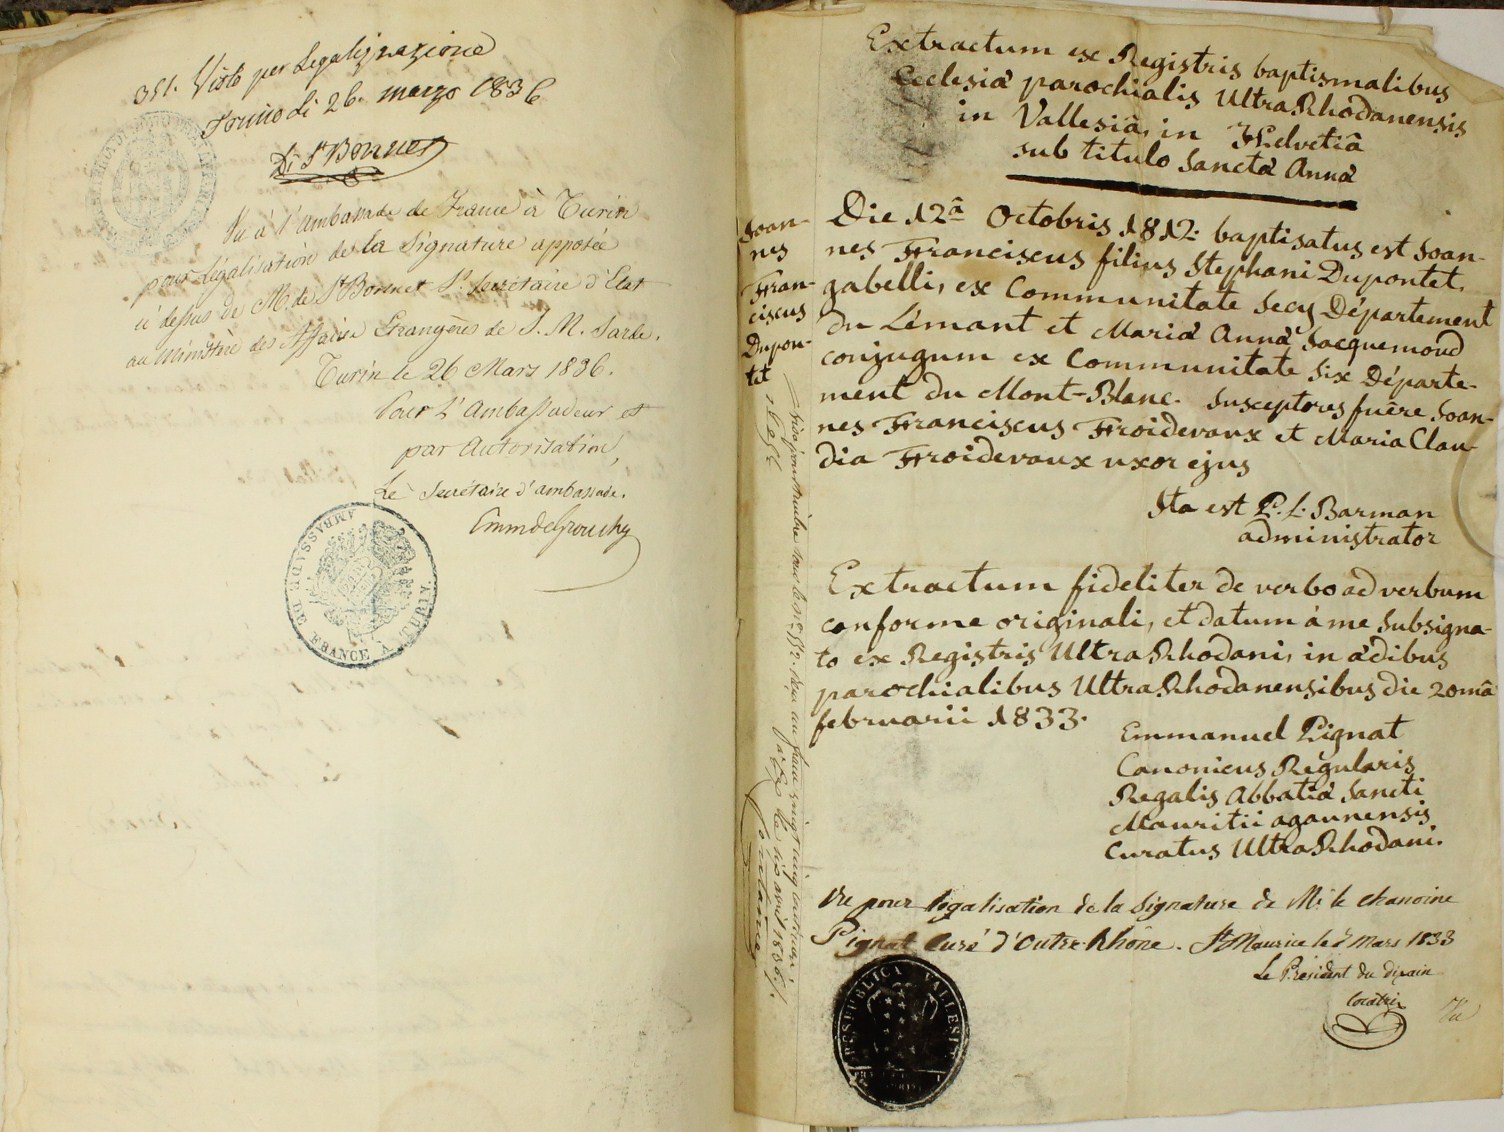 351. Visto per Legalizzazione
Torino Li 26. marzo 1836
Di St Bonnet
Vu à l'ambassade de France à Turin
pour légalisation de la Signature apposée
ci dessus de M. de St Bonnet Sre Secrétaire d'Etat
au Ministère des Affaires Etrangères de S. M. Sarde.
Turin le 26 Mars 1836.
Pour L'Ambassadeur et
par Autorisation,
Le Secrétaire d'ambassade.
Emm de Grouchy
AMBASSADE DE FRANCE A TURIN.
Extractum ex Registris baptismalibus
Ecclesiæ parochialis UltraRhodanensis
in Vallesiâ, in Helvetiâ
sub titulo Sanctæ Annæ
Joan-
nes
Fran-
ciscus
Dupon-
tet
Die 12â Octobris 1812. baptisatus est Joan-
nes Franciscus filius Stephani Dupontet,
gabelli, ex Communitate Secy Département
du Lémant et Mariæ Annæ Jacquemoud
conjugum ex Communitate Six Départe-
ment du Mont-Blanc. Susceptores fuêre Joan-
nes Franciscus Froidevaux et Maria Clau-
dia Froidevaux uxor ejus
Ita est P. L. Barman
administrator
Extractum fideliter de verbo ad verbum
conforme originali, et datum à me subsigna-
to ex Registris UltraRhodani, in ædibus
parochialibus UltraRhodanensibus die 20mâ
februarii 1833.
Emmanuel Pignat
Canonicus Regularis
Regalis Abbatiæ Sancti
Mauritii agaunensis
Curatus UltraRhodani.
Vu pour légalisation de la Signature de Mr. le chanoine
Pignat Curé d'Outre-Rhône. St Maurice le 2 Mars 1833
Le Président du dixain
Cocatrix
Vu
RESPUBLICA VALLESI